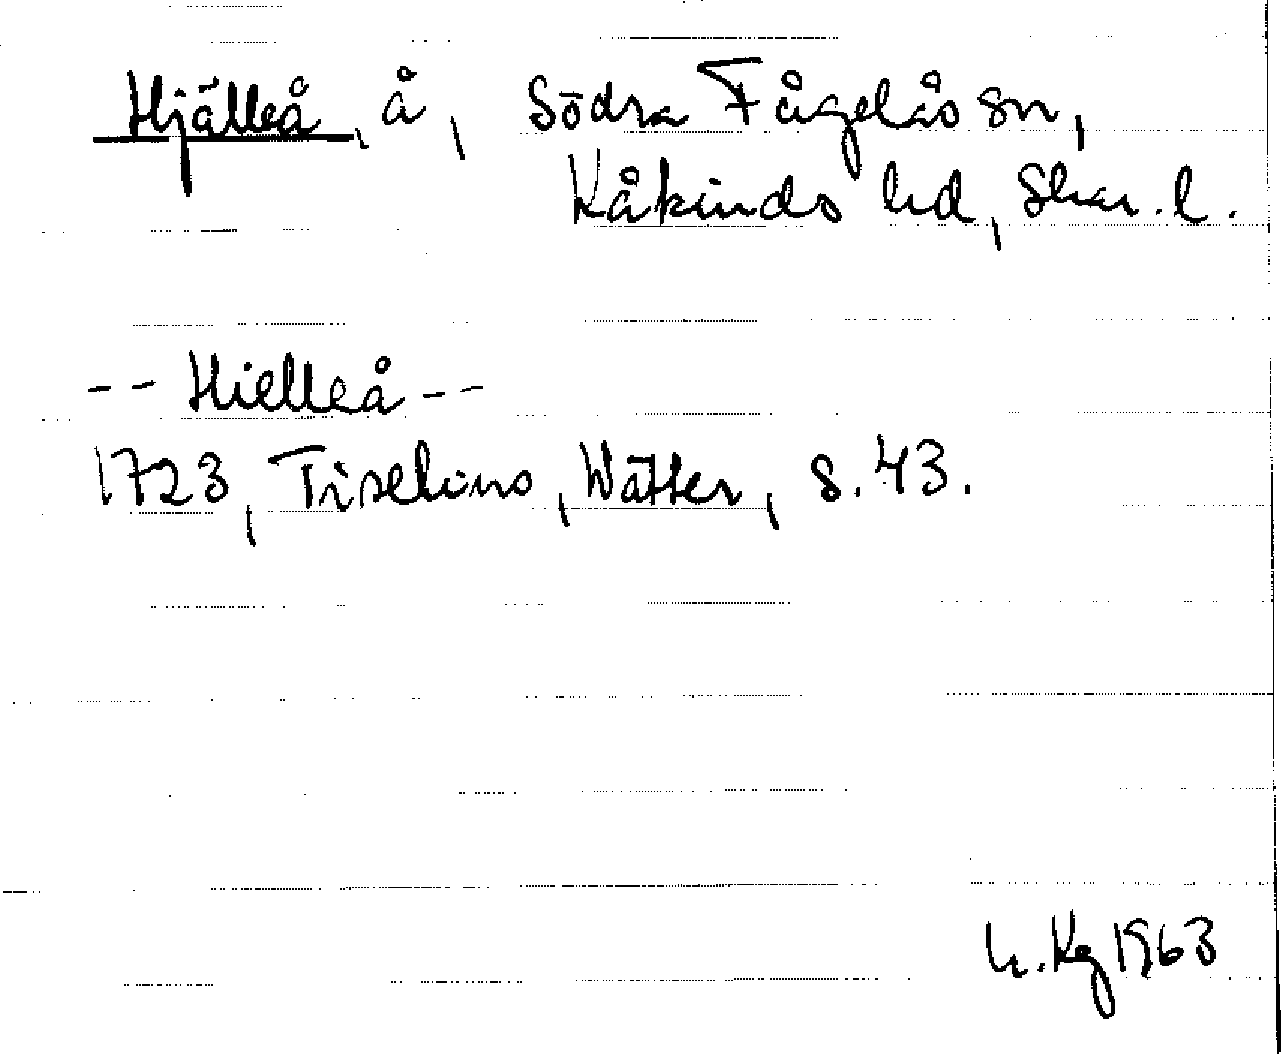 Hjälleå, å, Södra Fågelås sn,
Kåkinds hd, Skar. l.
-- Hielleå --
1723, Tiselius, Wätter, s. 43.
h. Kg 1963